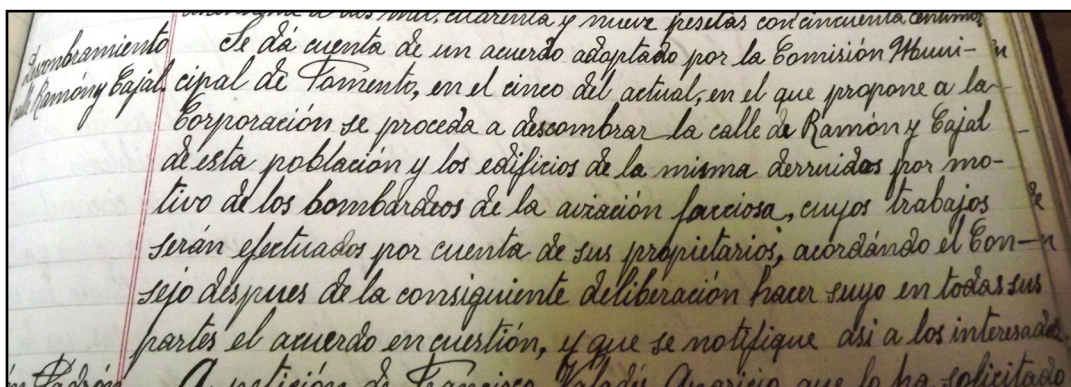 dos mil, cuarenta y nueve pesetas con cincuenta centimos.
Descombramiento
calle Ramón y Cajal.
Se dá cuenta de un acuerdo adoptado por la Comisión Muni-
cipal de Fomento, en el cinco del actual, en el que propone a la
Corporación se proceda a descombrar la calle de Ramón y Cajal
de esta población y los edificios de la misma derruidos por mo-
tivo de los bombardeos de la aviación facciosa, cuyos trabajos
serán efectuados por cuenta de sus propietarios, acordándo el Con-
sejo despues de la consiguiente deliberación hacer suyo en todas sus
partes el acuerdo en cuestión, y que se notifique asi a los interesados.
Padrón
A petición de Francisco Valadés Aparicio que lo ha solicitado